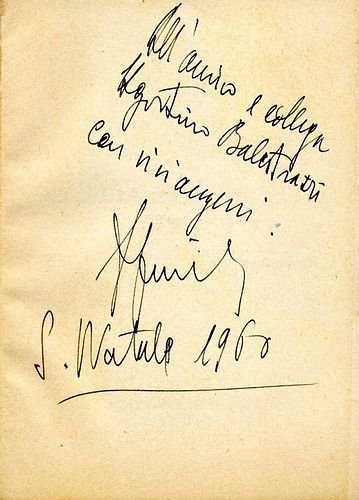 All'amico e collega
Agostino
con vivi auguri.
S. Natale 1960